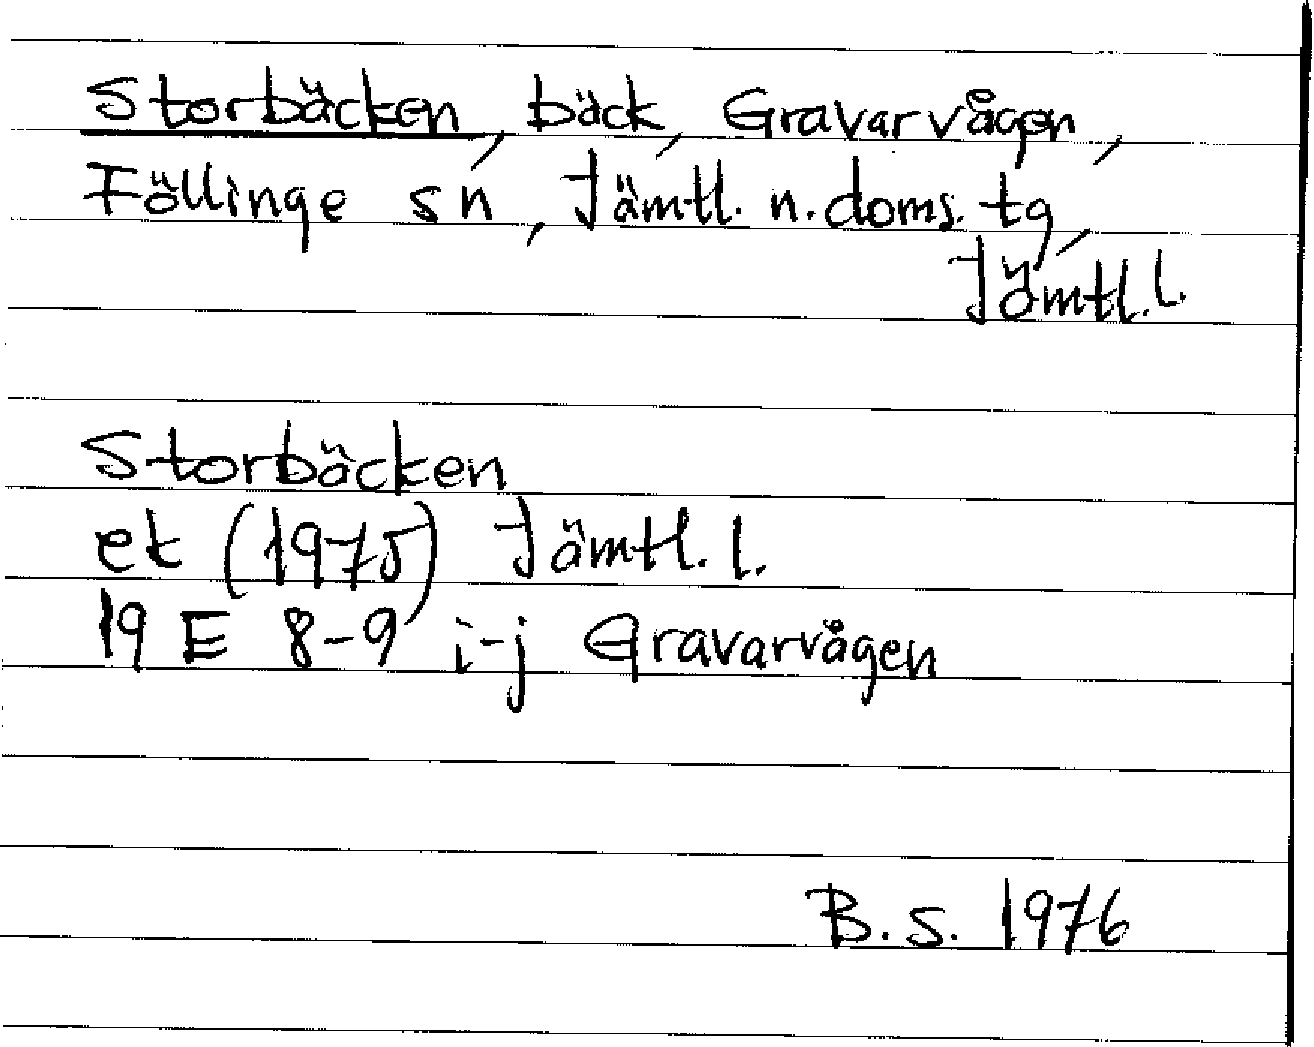 Storbäcken, bäck, Gravarvågen,
Föllinge sn, Jämtl. n. doms. tg,
Jämtl. l.
Storbäcken
ek (1975) Jämtl. l.
19 E 8-9 i-j Gravarvågen
B.S. 1976